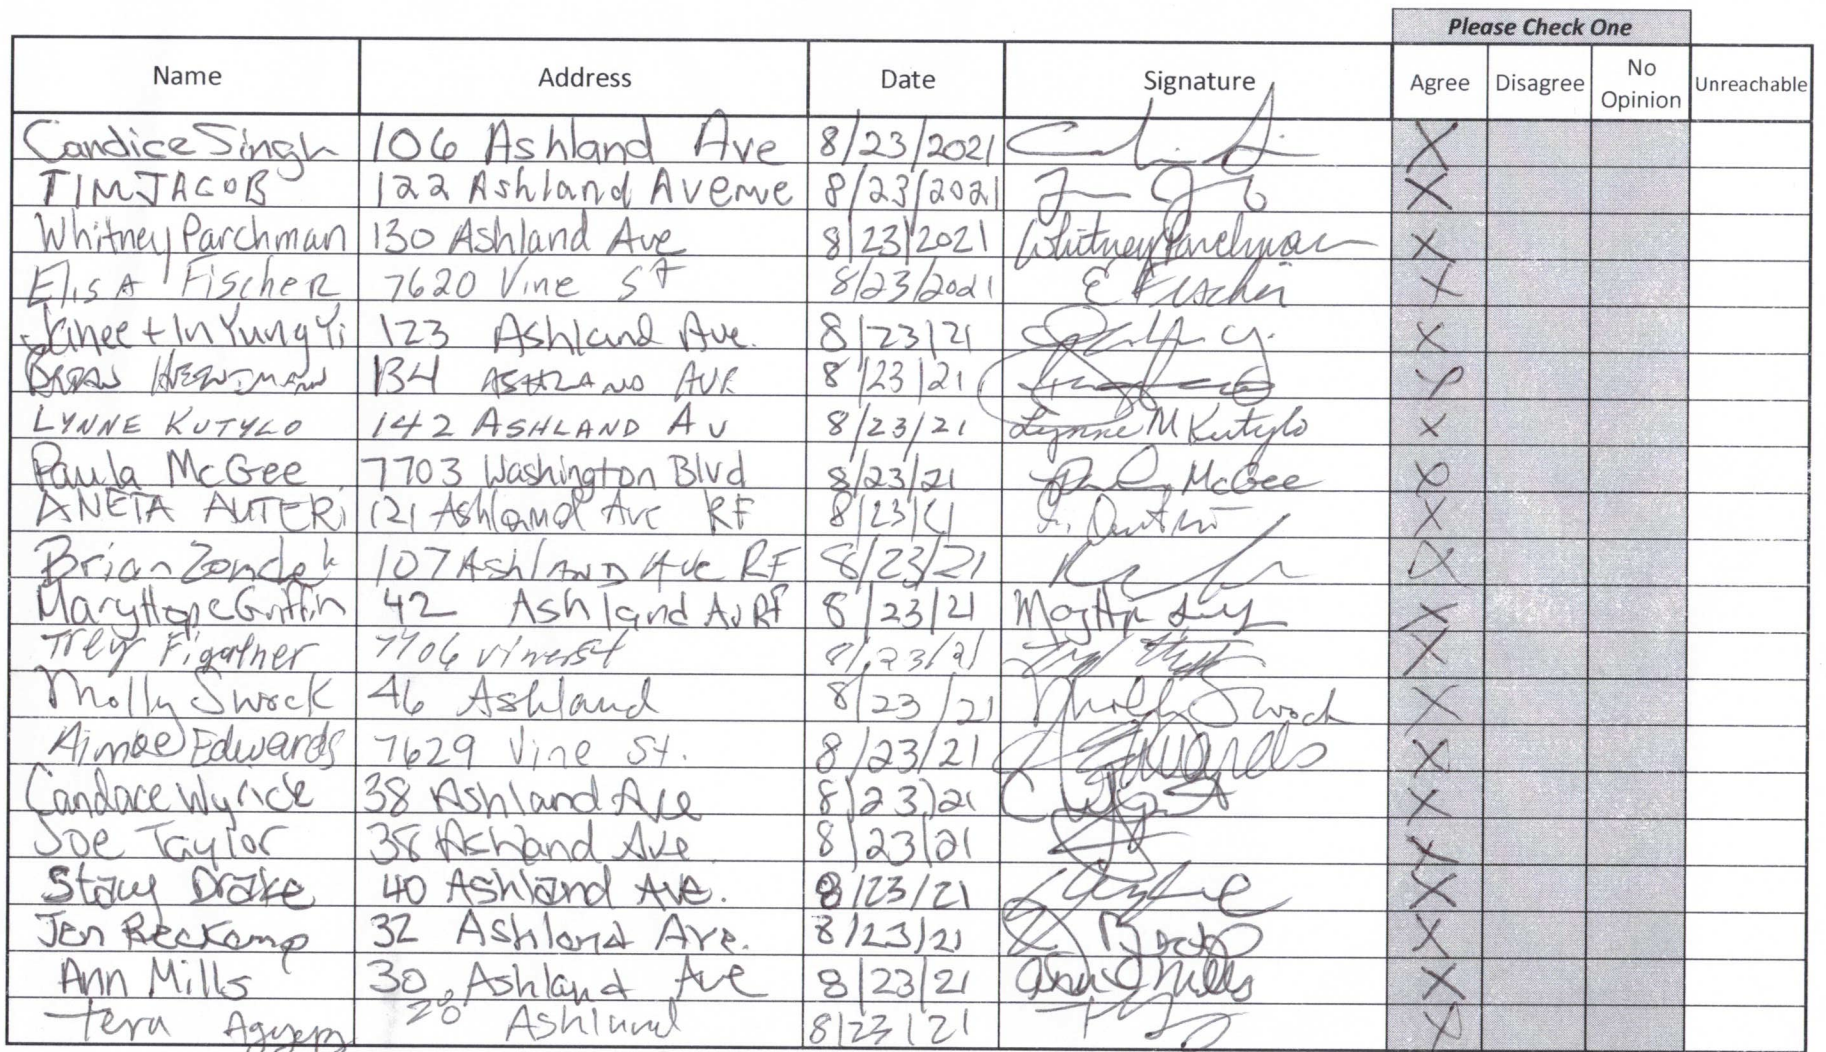 Please Check One
Name Address Date Signature Agree Disagree No Opinion Unreachable
Candice Singh 106 Ashland Ave 8/23/2021 X
TIM JACOB 122 Ashland Avenue 8/23/2021 X
Whitney Parchman 130 Ashland Ave 8/23/2021 Whitney Parchman X
Elisa Fischer 7620 Vine St 8/23/2021 E Fischer X
Janee + In Yung Yi 123 Ashland Ave. 8/23/21 X
134 ASHLAND AVE 8/23/21 X
LYNNE KUTYLO 142 ASHLAND AV 8/23/21 Lynne M Kutylo X
Paula McGee 7703 Washington Blvd 8/23/21 McGee X
ANETA AUTERI 121 Ashland Ave RF 8/23/21 X
Brian Zondek 107 Ashland Ave RF 8/23/21 X
Mary Hope Griffin 42 Ashland Av RF 8/23/21 X
7706 vine st 8/23/21 X
Molly Swock 46 Ashland 8/23/21 Molly Swock X
Aimee Edwards 7629 Vine St. 8/23/21 Edwards X
Candace Wyrick 38 Ashland Ave 8/23/21 X
Joe Taylor 38 Ashland Ave 8/23/21 X
Stacy Drake 40 Ashland Ave. 8/23/21 X
Jen Beckamp 32 Ashland Ave. 8/23/21 X
Ann Mills 30 Ashland Ave 8/23/21 Ann Mills X
20 Ashland 8/23/21 X